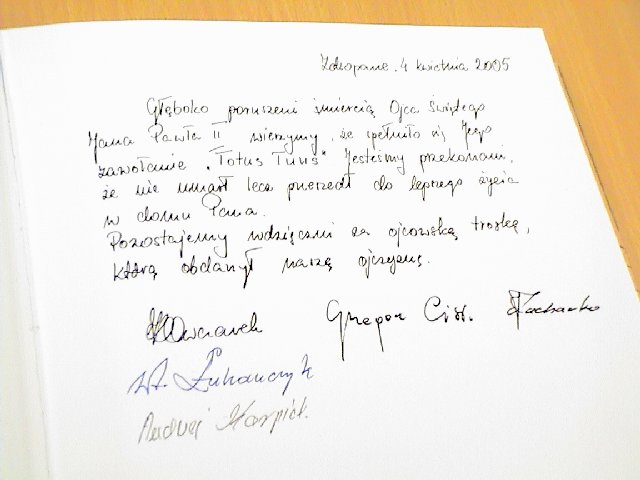 Zakopane, 4 kwietnia 2005
Głęboko poruszeni śmiercią Ojca Świętego
Jana Pawła II wierzymy, że spełniło się Jego
zawołanie „Totus Tuus" Jesteśmy przekonani,
że nie umarł lecz przeszedł do lepszego życia
w domu Pana.
Pozostajemy wdzięczni za ojcowską troskę,
którą obdarzył naszą ojczyznę.
Grzegorz
Andrzej